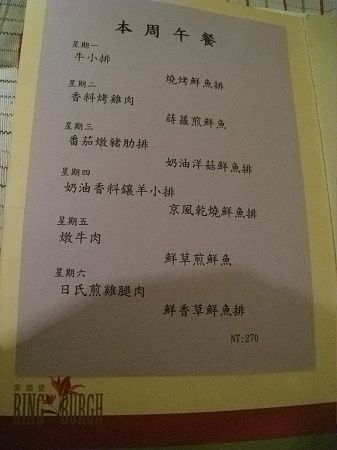 本周午餐
星期一
牛小排
燒烤鮮魚排
星期二
香料烤雞肉
蒔蘿煎鮮魚
星期三
番茄燉豬肋排
奶油洋菇鮮魚排
星期四
奶油香料鑲羊小排
京風乾燒鮮魚排
星期五
燉牛肉
鮮草煎鮮魚
星期六
日氏煎雞腿肉
鮮香草鮮魚排
NT:270
RING BURGH